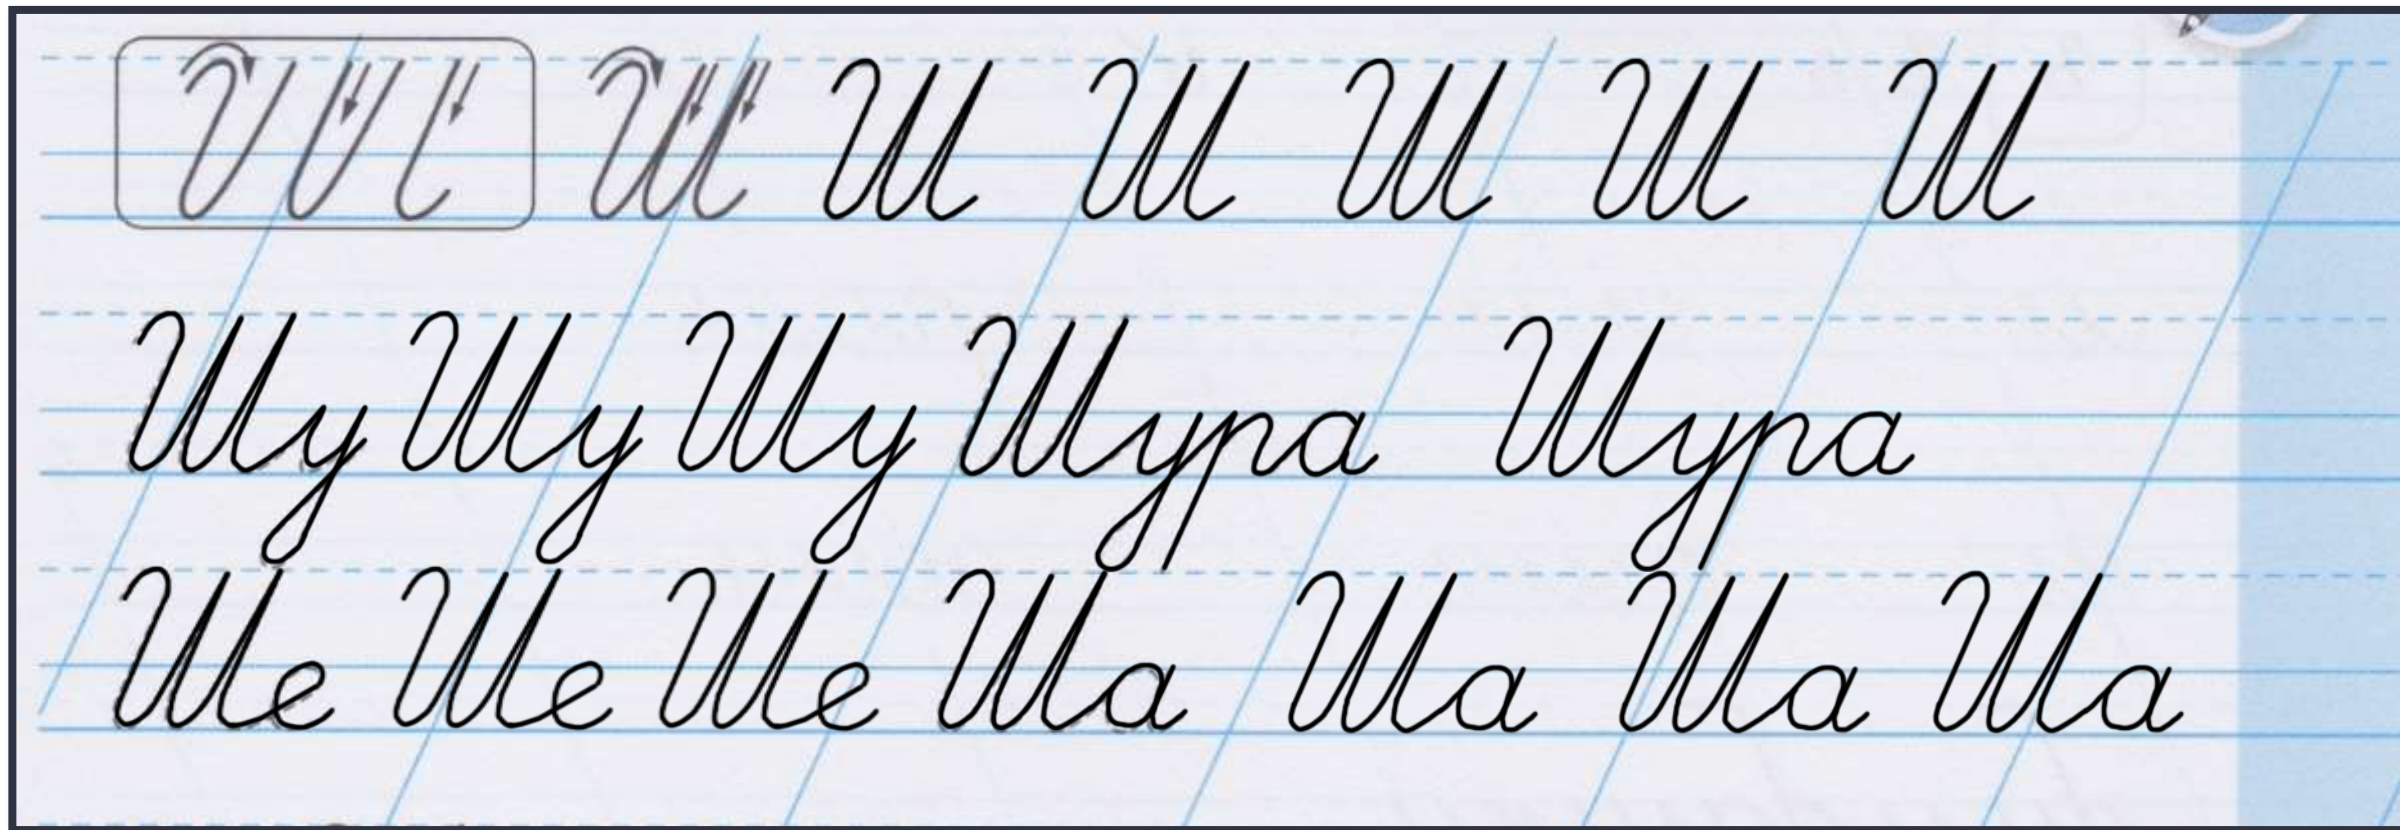 Ш Ш Ш Ш Ш Ш
Шу Шу Шу Шура Шура
Ше Ше Ше Ша Ша Ша Ша